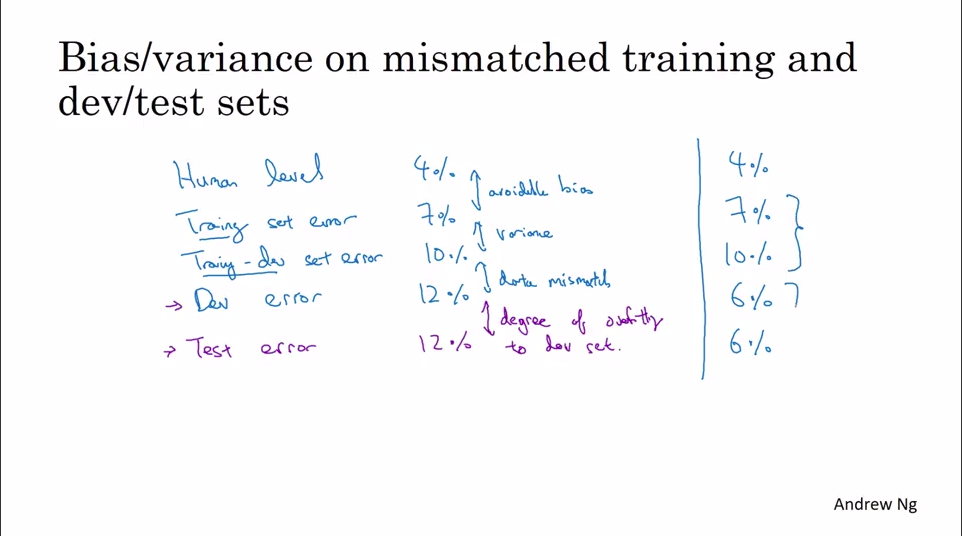 Bias/variance on mismatched training and
dev/test sets
Human level 4% 4%
avoidable bias
Training set error 7% 7%
variance
Training-dev set error 10% 10%
data mismatch
→ Dev error 12% 6%
degree of overfitting
to dev set.
→ Test error 12% 6%
Andrew Ng